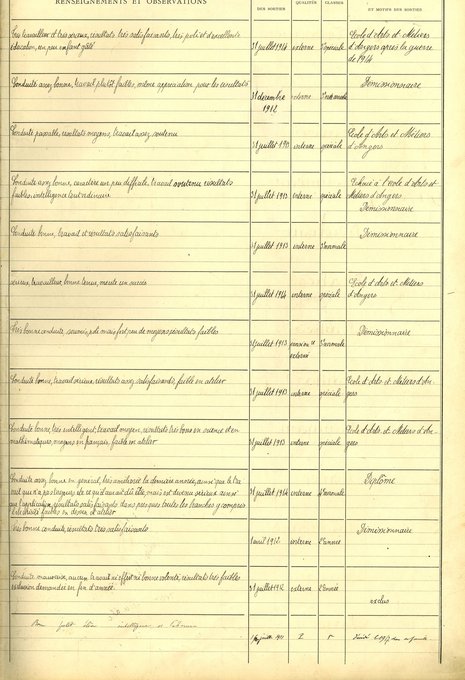 RENSEIGNEMENTS ET OBSERVATIONS
DES SORTIES
QUALITÉS
CLASSES
ET MOTIFS DES SORTIES
Très travailleur et très sérieux, résultats très satisfaisants, très poli et d'excellente
éducation, un peu enfant gâté
31 juillet 1914 interne
Ecole d'Arts et Métiers
d'Angers après la guerre
de 1914
Conduite assez bonne, travail plutôt faible, même appréciation pour les résultats
31 décembre
1912
externe
Démissionnaire
Conduite passable, résultats moyens, travail assez soutenu
31 juillet interne spéciale
Ecole d'Arts et Métiers
d'Angers
Conduite assez bonne, caractère un peu difficile, travail soutenu résultats
faibles, intelligence
31 juillet 1913 interne spéciale
Echoué à l'école d'Arts et
Métiers d'Angers
Démissionnaire
Conduite bonne, travail et résultats satisfaisants
31 juillet 1913 externe normale
Démissionnaire
sérieux, travailleur, bonne tenue, mérite un succès
31 juillet 1914 interne spéciale
Ecole d'Arts et Métiers
d'Angers
Très bonne conduite, mais fort peu de moyens résultats faibles
31 juillet 1913
Démissionnaire
Conduite bonne, travail sérieux, résultats assez satisfaisants, faible en atelier
31 juillet 1913 interne spéciale
Ecole d'Arts et Métiers d'An-
gers
Conduite bonne, très intelligent, travail moyen, résultats très bons en science et en
mathématiques, moyens en français, faible en atelier
31 juillet 1913 interne spéciale
Ecole d'Arts et Métiers d'An-
gers
Conduite assez bonne en général, très améliorée la dernière année, ainsi que le tra-
vail qui n'a pas toujours été ce qu'il aurait dû être, mais est devenu sérieux ainsi
que l'application, résultats satisfaisants dans presque toutes les branches y compris
faibles en dessin et atelier
31 juillet 1914 interne
Diplôme
Très bonne conduite, résultats très satisfaisants
1 avril 1912 interne année
Démissionnaire
Conduite mauvaise, aucun travail ni effort ni bonne volonté, résultats très faibles
exclusion demandée en fin d'année
31 juillet 1912 externe année
exclus
Bon petit élève intelligent et
juillet